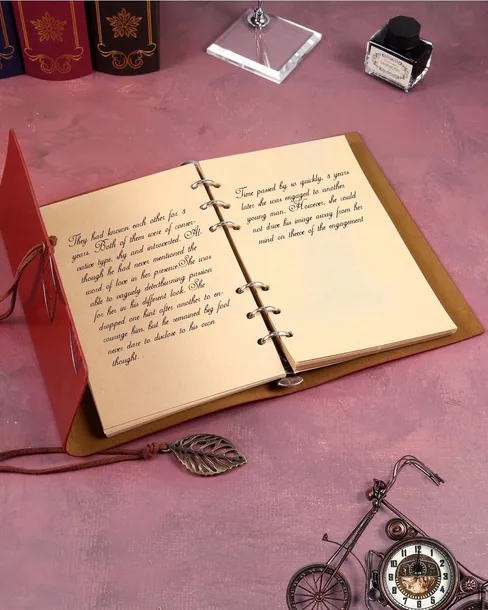 They had known each other for s
years. Both of them were of conser-
vative type, shy and introverted. Al,
though he had never mentioned the
word of love in her presence.She was
able to vaguely detectburning passion
for her in his different look. She
dropped one hint after another to en-
courage him, but he remained big fool
never dare to disclose to his own
thought. .
Time passed by so quickly, s years
later she was engaged to another
young man. However, she could
not dive his image away from her
mind on theve of the engagement
12
1
2
3
4
5
6
7
8
9
10
11